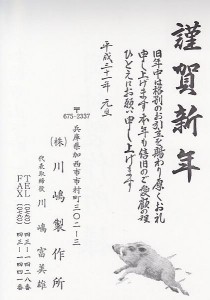 謹賀新年
旧年中は格別のお引立を賜わり厚くお礼
申し上げます本年も倍旧のご愛顧の程
ひとえにお願い申し上げます
平成三十一年 元旦
〒
675-2337
兵庫県加西市市村町三〇二ー三
(株)川嶋製作所
代表取締役 川嶋富美雄
TEL (〇七九〇) 四三ー一四二八番
FAX (〇七九〇) 四三ー